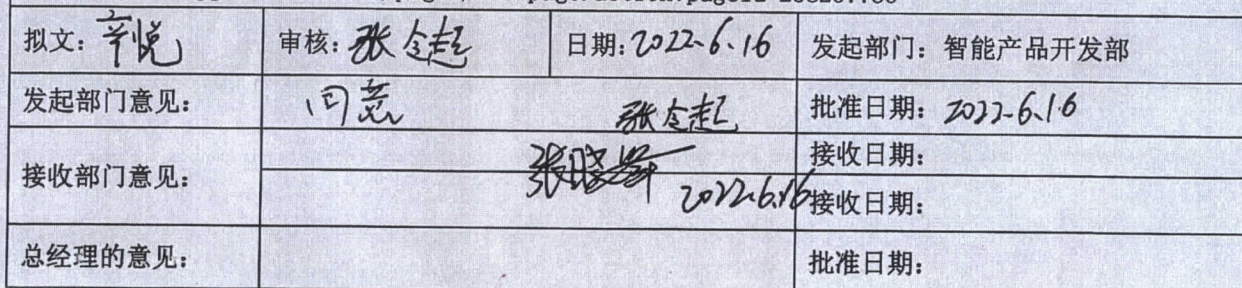 拟文：辛悦 审核：张令起 日期：2022.6.16 发起部门：智能产品开发部
发起部门意见： 同意 张令起 批准日期：2022.6.16
接收部门意见： 2022.6.16 接收日期：
接收日期：
总经理的意见： 批准日期：